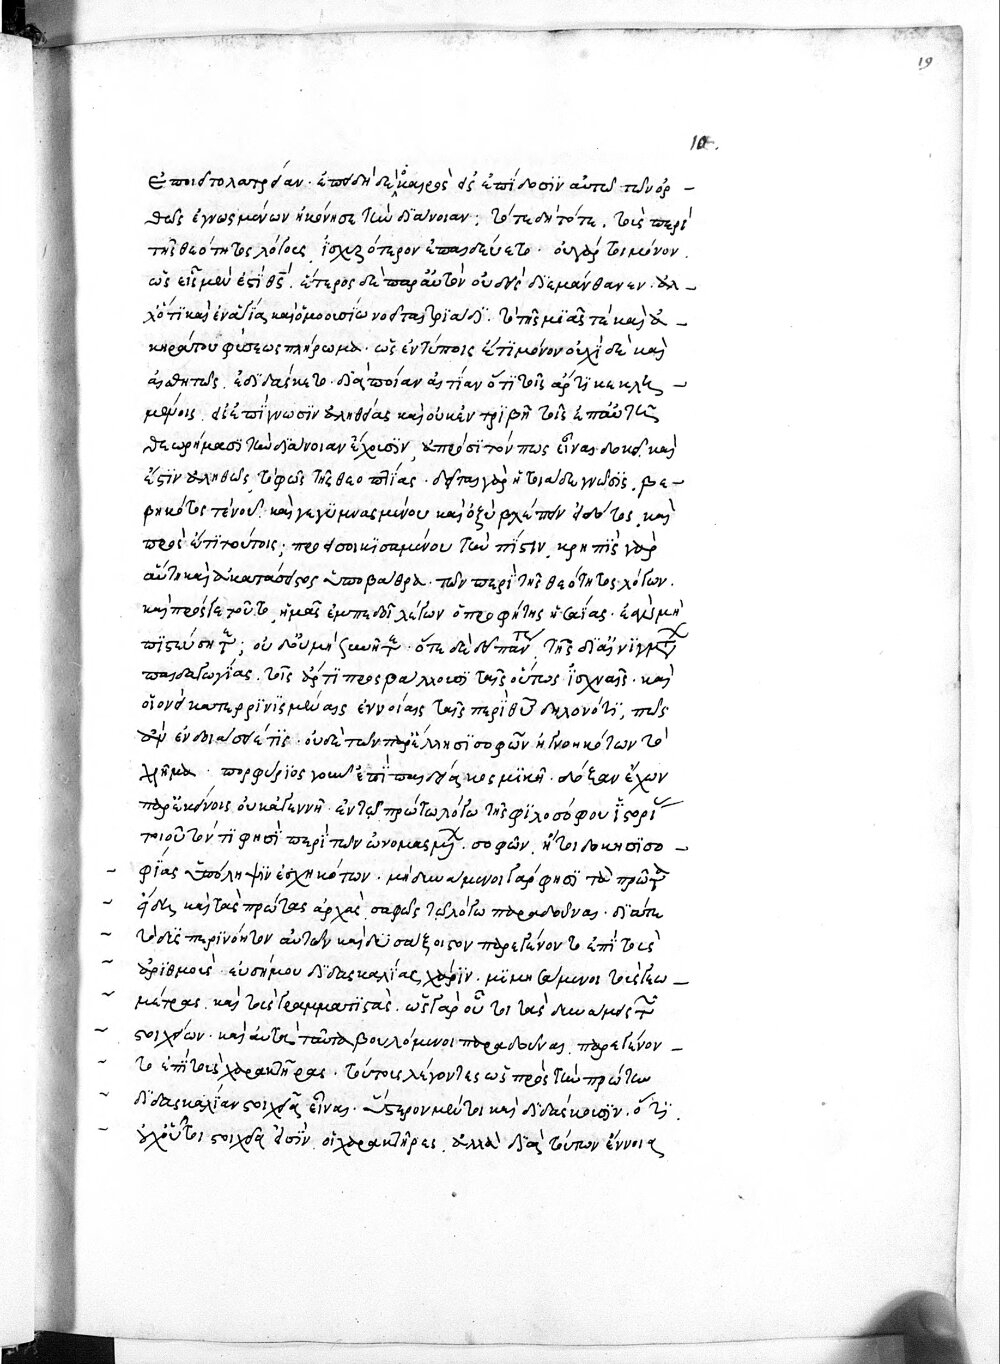 19
10.
ἐποιστολατρίαν. ἐπειδὴ δὲ ὁ καιρὸς εἰς ἐπίδοσιν αὐτῷ τῶν ὀρ-
θῶς ἐγνωσμένων ἠκόνησε τὴν διάνοιαν· τότε δὴ τότε, τοῖς περὶ
τῆς θεότητος λόγοις, ἰσχνότερον ἐπαιδεύετο. οὐ γάρ τοι μόνον
ὡς εἷς μέν ἐστι θς̄. ἕτερος δὲ παρ' αὐτὸν οὐδεὶς διεμάνθανεν. ἀλ-
λ' ὅτι καὶ ἐν ἁγίᾳ καὶ ὁμοουσίῳ νοεῖται τριάδι. τὸ τῆς μιᾶς τε καὶ ἀ-
κηράτου φύσεως πλήρωμα. ὡς ἐν τύποις ἔτι μόνον οὐχὶ δὲ καὶ
ἀληθῶς, ἐδιδάσκετο. διὰ ποίαν αἰτίαν ὅτι τοῖς ἄρτι κεκλη-
μένοις, εἰς ἐπίγνωσιν ἀληθείας καὶ οὐκ ἐν τριβῇ τοῖς ἐπ' αὐτῇ
θεωρήμασι τὴν διάνοιαν ἔχουσιν, ἀπρόσιτόν πως εἶναι δοκεῖ καὶ
ἔστιν ἀληθῶς, τὸ φῶς τῆς θεοπτίας. δεῖται γὰρ ἡ τοιάδε γνῶσις, βε-
βηκότος τε νοῦ. καὶ γεγυμνασμένου καὶ ὀξὺ βλέπειν εἰδότος, καὶ
πρὸς ἔτι τούτοις, προεισοικισαμένου τὴν πίστιν, κρηπὶς γὰρ
αὕτη καὶ ἀκατάσειστος ὑποβάθρα. τῶν περὶ τῆς θεότητος λόγων.
καὶ πρός γε τοῦτο, ἡμᾶς ἐμπεδοῖ λέγων ὁ προφήτης ἡσαΐας. ἐὰν μὴ
πιστεύσητε, οὐδ' οὐ μὴ συνῆτε. ὅτε δὲ δεῖ πάντως τῆς δι' αἰνιγμάτων
παιδαγωγίας, τοῖς ἄρτι προσβάλλουσι ταῖς οὕτως ἰσχναῖς. καὶ
οἱονεὶ κατερρινισμέναις ἐννοίαις ταῖς περὶ θῡ δηλονότι, πῶς
ἂν ἐνδοιάσειέ τις. οὐδὲ τῶν παρ' ἕλλησι σοφῶν ἠγνοηκότων τὸ
χρῆμα. πορφύριος γοῦν ἐπὶ παιδείᾳ κοσμικῇ. δόξαν ἔχων
παρ' ἐκείνοις οὐκ ἀγεννῆ. ἐν τῷ πρώτῳ λόγῳ τῆς φιλοσόφου ἱστορίας
τοιοῦτόν τι φησὶ περὶ τῶν ὠνομασμένων. σοφῶν, ἤτοι δοκησισο-
φίας ὑπόληψιν ἐσχηκότων. μὴ δυνάμενοι γάρ φησι τὰ πρῶτα
εἴδη καὶ τὰς πρώτας ἀρχὰς σαφῶς τῷ λόγῳ παραδοῦναι. διά τε
τὸ δυσπερινόητον αὐτῶν καὶ δυσέξοιστον παρεγένοντο ἐπὶ τοὺς
ἀριθμοὺς. εὐσήμου διδασκαλίας χάριν. μιμησάμενοι τοὺς γεω-
μέτρας, καὶ τοὺς γραμματιστάς. ὡς γὰρ οὗτοι τὰς δυνάμεις τῶν
στοιχείων. καὶ αὐτὰ ταῦτα βουλόμενοι παραδοῦναι, παρεγένον-
το ἐπὶ τοὺς χαρακτῆρας. τούτοις λέγοντες ὡς πρὸς τὴν πρώτην
διδασκαλίαν στοιχεῖα εἶναι. ὕστερον μέντοι καὶ διδάσκουσιν. ὅτι
οὐχ οὗτοι στοιχεῖά εἰσιν. οἱ χαρακτῆρες, ἀλλὰ διὰ τούτων ἔννοια